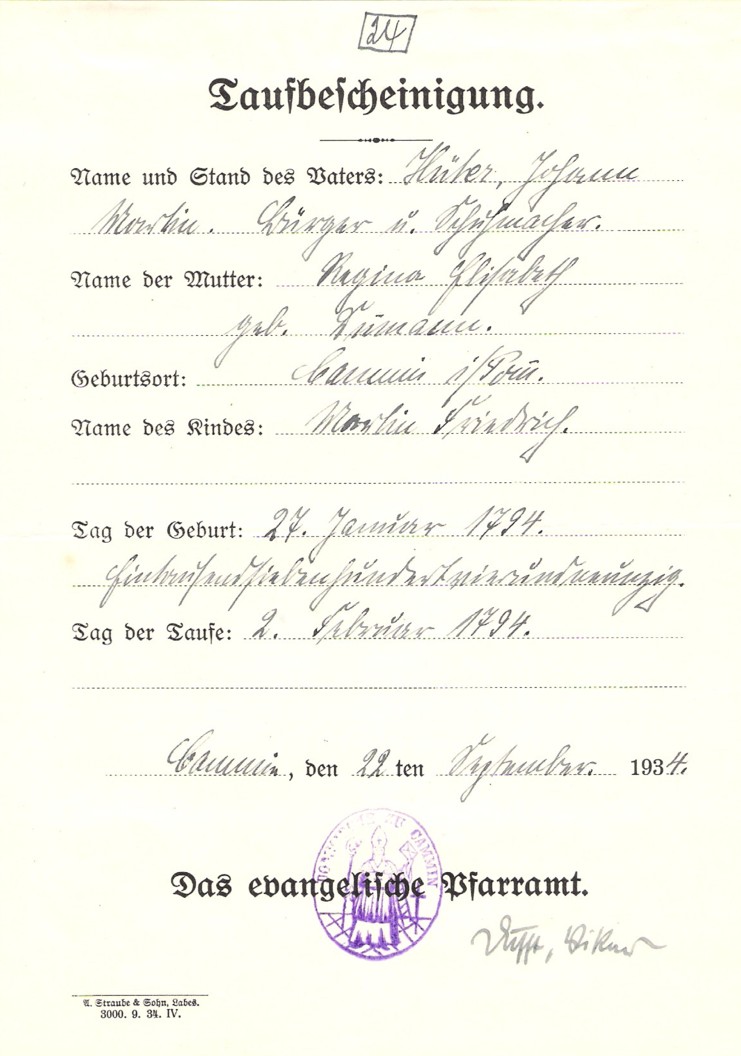 24
Taufbescheinigung.
Name und Stand des Vaters: Hüker, Johann
Martin. Bürger u. Schuhmacher.
Name der Mutter: Regina Elisabeth
geb. Tumann.
Geburtsort: Cammin i/Pom.
Name des Kindes: Martin Friedrich.
Tag der Geburt: 27. Januar 1794.
Eintausendsiebenhundertvierundneunzig.
Tag der Taufe: 2. Februar 1794.
Cammin, den 22ten September. 1934.
ZU CAMMIN
Das evangelische Pfarramt.
Vikar
A. Straube & Sohn, Labes.
3000. 9. 34. IV.